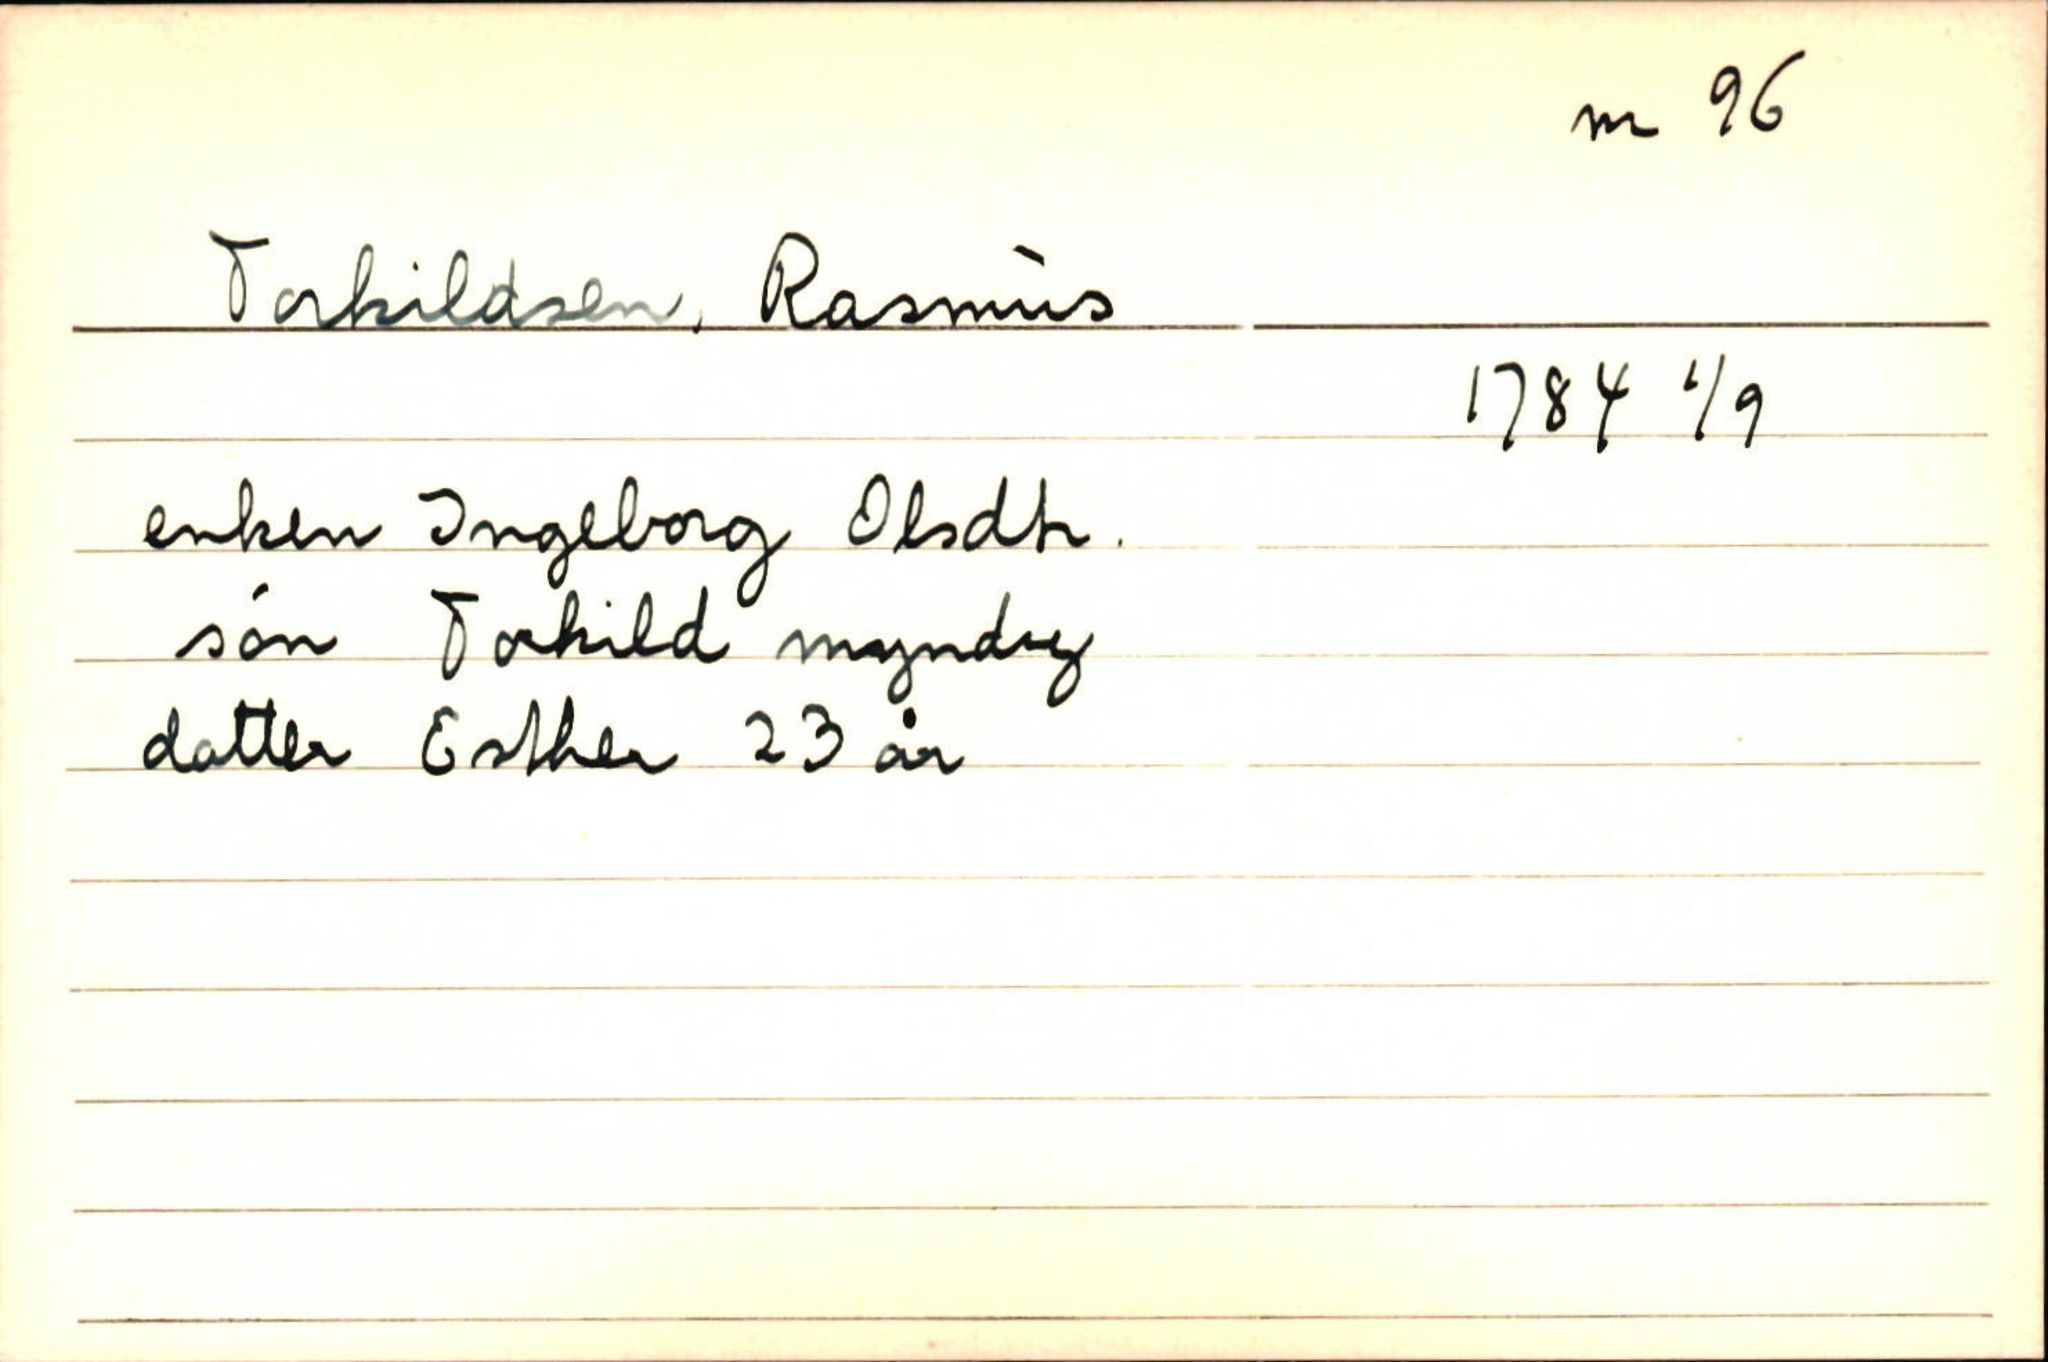 nr 96
Torkildsen, Rasmus
1784 1/9
enken Ingeborg Olsdtr.
sön Torkild myndig
datter Esther 23 år